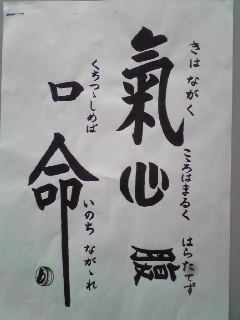 氣
きは ながく
心
こゝろはまるく
腹
はらたてず
口
くちつゝしめば
命
いのち ながゝれ